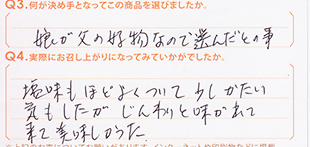 Q3.何が決め手となってこの商品を選びましたか。
娘が父の好物なので選んだとの事
Q4.実際にお召し上がりになってみていかがでしたか。
塩味もほどよくついて 少しかたい
気もしたが じんわりと味が出て
来て美味しかった。